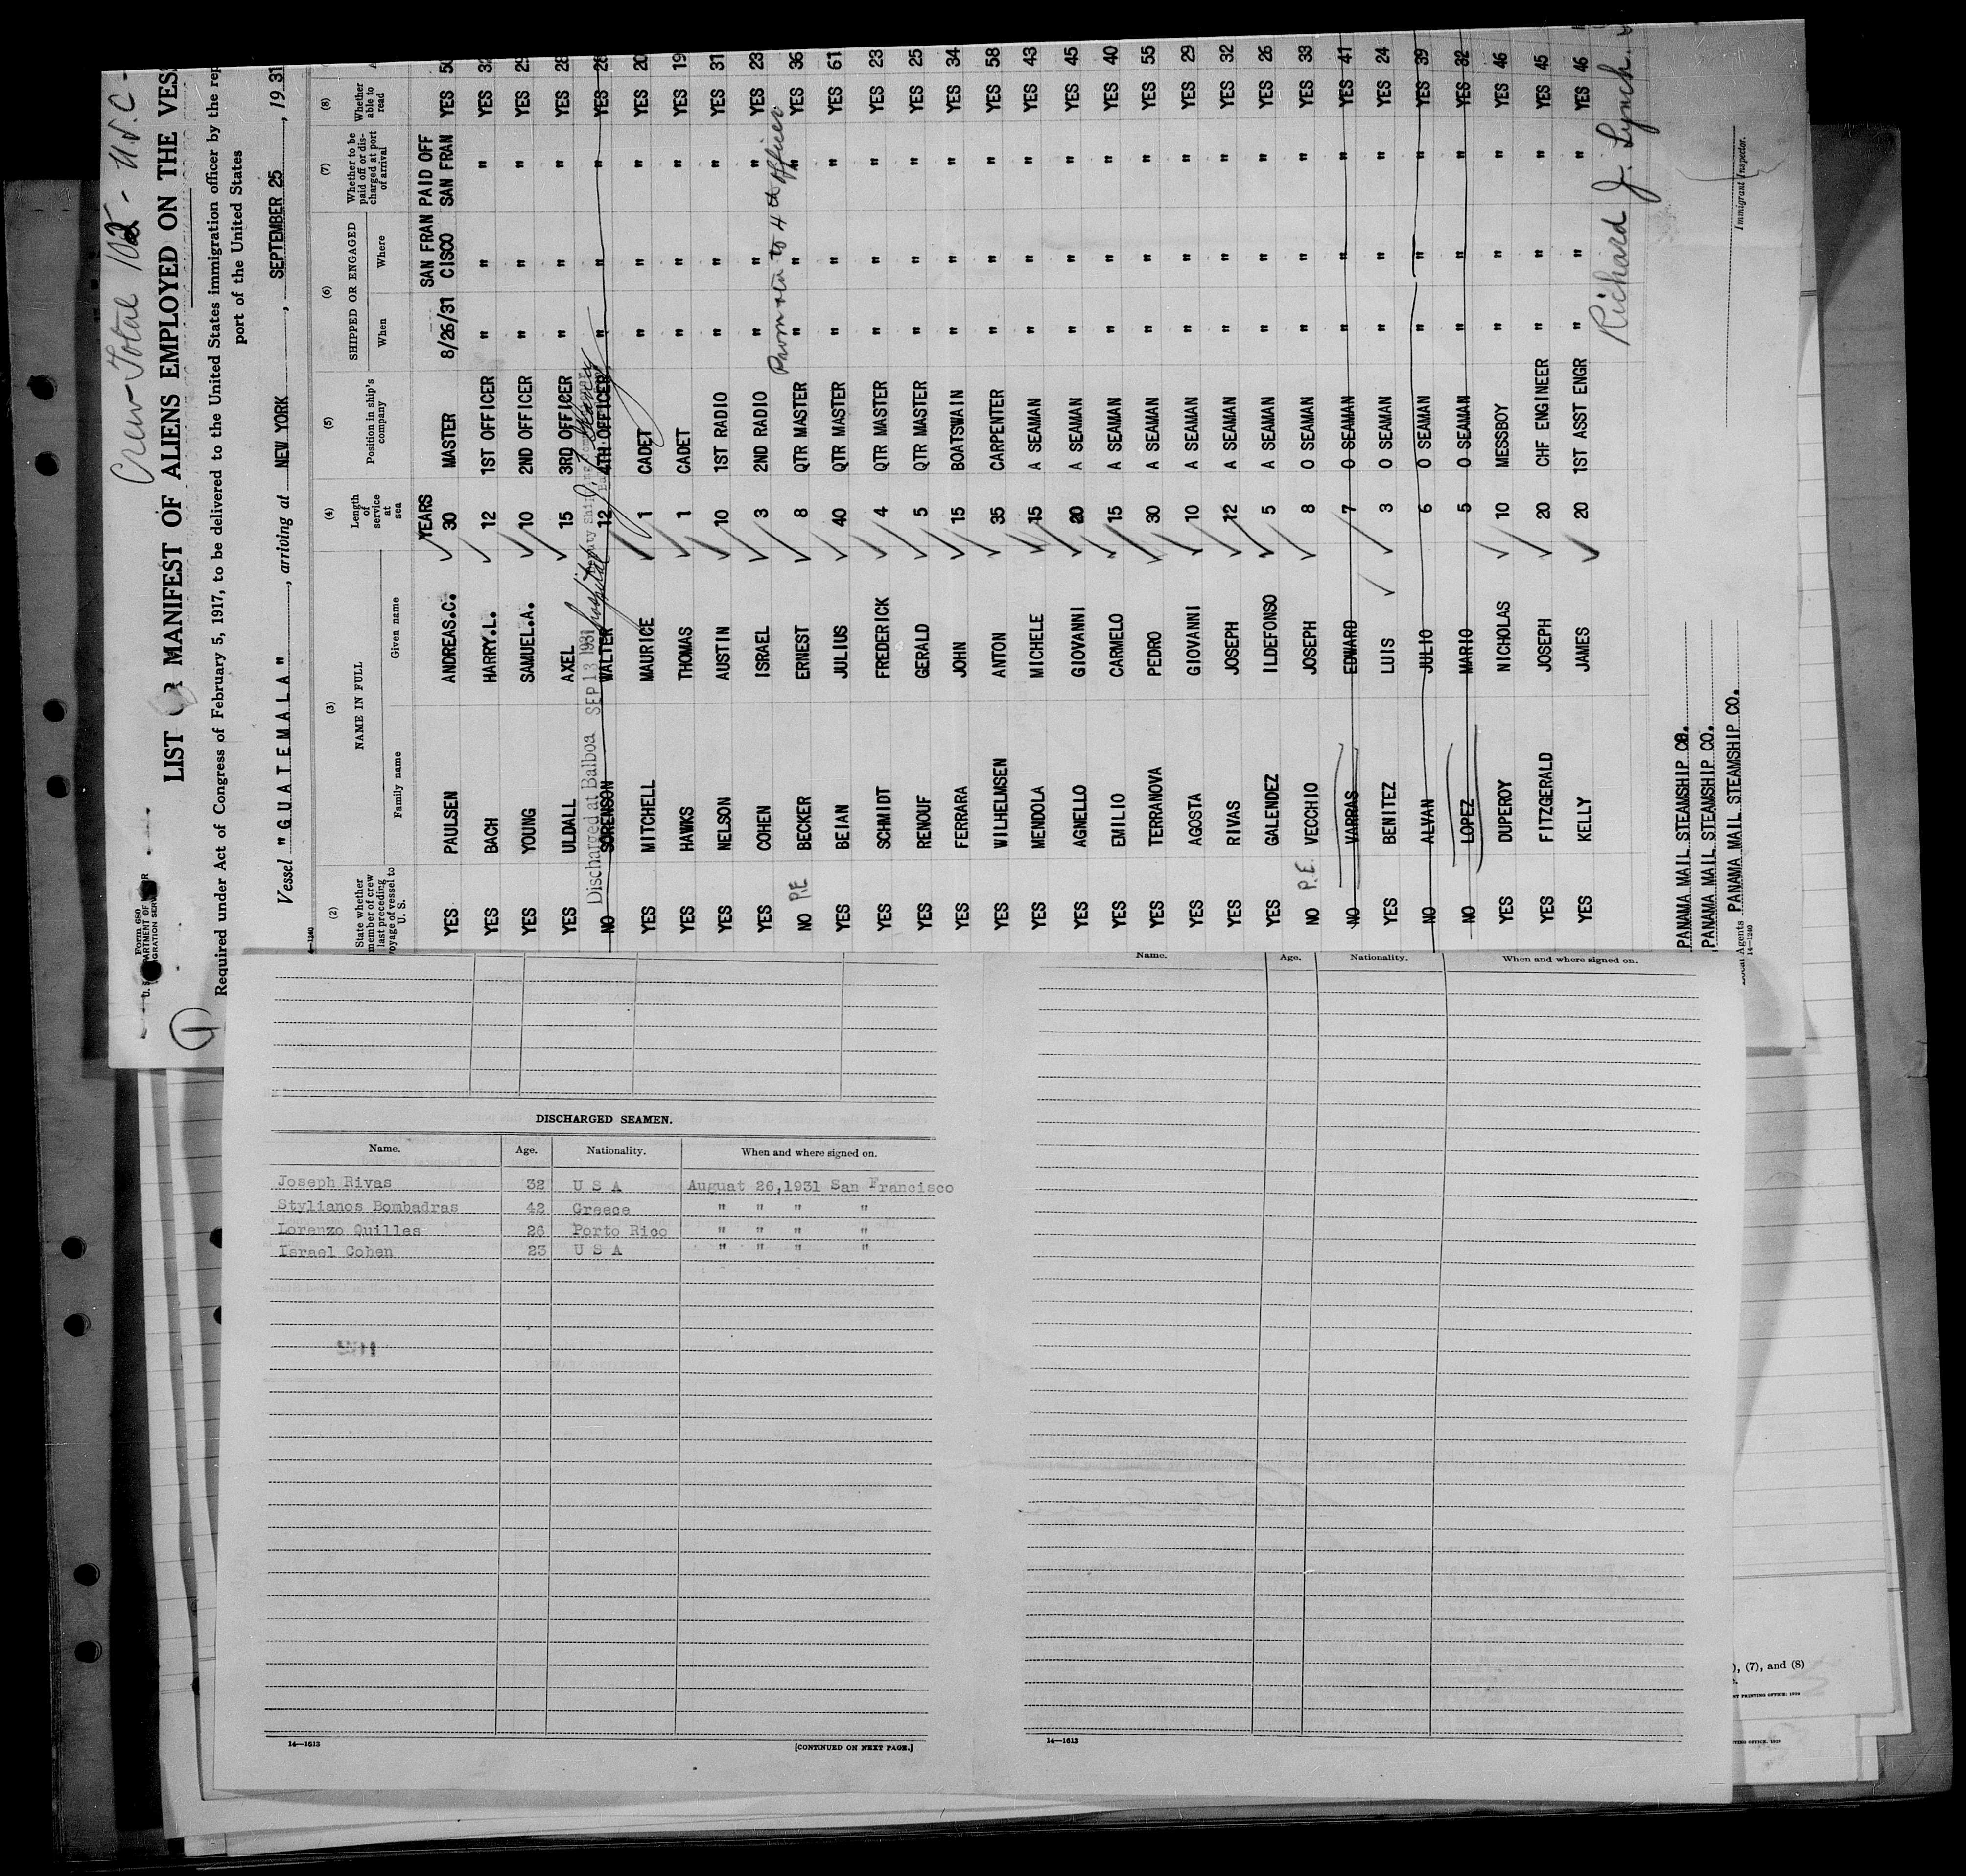 Crew Total 102 - U.S.C -
Form 680
LIST OR MANIFEST OF ALIENS EMPLOYED ON THE VES
Required under Act of Congress of February 5, 1917, to be delivered to the United States immigration officer by the rep
port of the United States
Vessel "GUATEMALA", arriving at NEW YORK, SEPTEMBER 25, 1931
14-1240
(2) (3) (4) (5) (6) (7) (8)
State whether member of crew last preceding voyage of vessel to U. S. NAME IN FULL Family name Given name Length of service at sea Position in ship's company SHIPPED OR ENGAGED When Where Whether to be paid off or discharged at port of arrival Whether able to read
YEARS SAN FRAN PAID OFF
YES PAULSEN ANDREAS.C. 30 MASTER 8/26/31 CISCO SAN FRAN YES 50
YES BACH HARRY.L. 12 1ST OFFICER " " " YES 32
YES YOUNG SAMUEL.A. 10 2ND OFFICER " " " YES 29
YES ULDALL AXEL 15 3RD OFFICER " " " YES 28
Discharged at Balboa SEP 13 1931 hospital
NO SORENSON WALTER 12 4TH OFFICER " " " YES 28
YES MITCHELL MAURICE 1 CADET " " " YES 20
YES HAWKS THOMAS 1 CADET " " " YES 19
YES NELSON AUSTIN 10 1ST RADIO " " " YES 31
YES COHEN ISRAEL 3 2ND RADIO " " " YES 23
to 4th officer
NO P.E BECKER ERNEST 8 QTR MASTER " " " YES 36
YES BEIAN JULIUS 40 QTR MASTER " " " YES 61
YES SCHMIDT FREDERICK 4 QTR MASTER " " " YES 23
YES RENOUF GERALD 5 QTR MASTER " " " YES 25
YES FERRARA JOHN 15 BOATSWAIN " " " YES 34
YES WILHELMSEN ANTON 35 CARPENTER " " " YES 58
YES MENDOLA MICHELE 15 A SEAMAN " " " YES 43
YES AGNELLO GIOVANNI 20 A SEAMAN " " " YES 45
YES EMILIO CARMELO 15 A SEAMAN " " " YES 40
YES TERRANOVA PEDRO 30 A SEAMAN " " " YES 55
YES AGOSTA GIOVANNI 10 A SEAMAN " " " YES 29
YES RIVAS JOSEPH 12 A SEAMAN " " " YES 32
YES GALENDEZ ILDEFONSO 5 A SEAMAN " " " YES 26
NO P.E. VECCHIO JOSEPH 8 O SEAMAN " " " YES 33
NO VARRAS EDWARD 7 O SEAMAN " " " YES 41
YES BENITEZ LUIS 3 O SEAMAN " " " YES 24
NO ALVAN JULIO 6 O SEAMAN " " " YES 39
NO LOPEZ MARIO 5 O SEAMAN " " " YES 32
YES DUPEROY NICHOLAS 10 MESSBOY " " " YES 46
YES FITZGERALD JOSEPH 20 CHF ENGINEER " " " YES 45
YES KELLY JAMES 20 1ST ASST ENGR " " " YES 46
Richard J. Lynch
PANAMA MAIL STEAMSHIP CO.
PANAMA MAIL STEAMSHIP CO.
Local Agents PANAMA MAIL STEAMSHIP CO.
14-1240
Immigrant Inspector.
DISCHARGED SEAMEN.
Name. Age. Nationality. When and where signed on.
Joseph Rivas 32 U S A Auguat 26,1931 San Francisco
Stylianos Bombadras 42 Greece " " " "
Lorenzo Quilles 26 Porto Rico " " " "
Israel Cohen 23 U S A " " " "
14—1613
[CONTINUED ON NEXT PAGE.]
Name. Age. Nationality. When and where signed on.
14—1613
), (7), and (8)